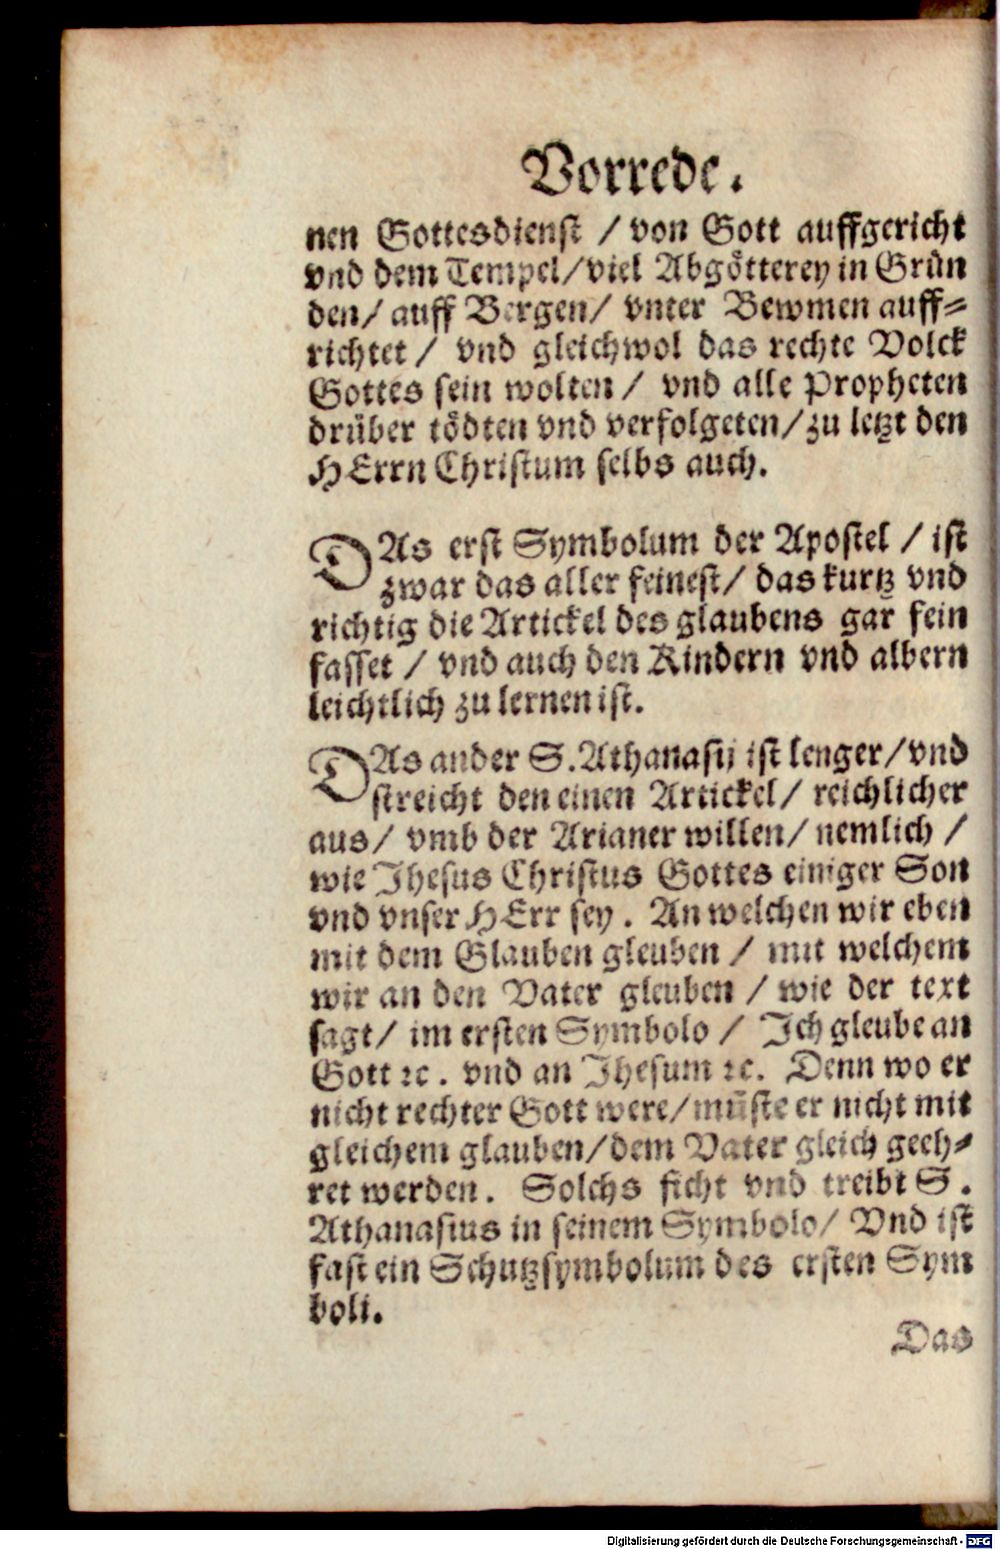 Vorrede.
nen Gottesdienst / von Gott auffgericht
vnd dem Tempel/viel Abgötterey in Grün
den/ auff Bergen/ vnter Bewmen auff-
richtet / vnd gleichwol das rechte Volck
Gottes sein wolten / vnd alle Propheten
drüber tödten vnd verfolgeten/zu letzt den
HErrn Christum selbs auch.
DAs erst Symbolum der Apostel / ist
zwar das aller feinest/ das kurtz vnd
richtig die Artickel des glaubens gar fein
fasset / vnd auch den Kindern vnd albern
leichtlich zu lernen ist.
DAs ander S. Athanasij ist lenger/vnd
streicht den einen Artickel/ reichlicher
aus/ vmb der Arianer willen/ nemlich /
wie Jhesus Christus Gottes einiger Son
vnd vnser HErr sey. An welchen wir eben
mit dem Glauben gleuben / mit welchem
wir an den Vater gleuben / wie der text
sagt/ im ersten Symbolo / Ich gleube an
Gott ꝛc. vnd an Jhesum ꝛc. Denn wo er
nicht rechter Gott were/müste er nicht mit
gleichem glauben/dem Vater gleich geeh-
ret werden. Solchs ficht vnd treibt S.
Athanasius in seinem Symbolo/ Vnd ist
fast ein Schutzsymbolum des ersten Sym
boli.
Das
Digitalisierung gefördert durch die Deutsche Forschungsgemeinschaft - DFG